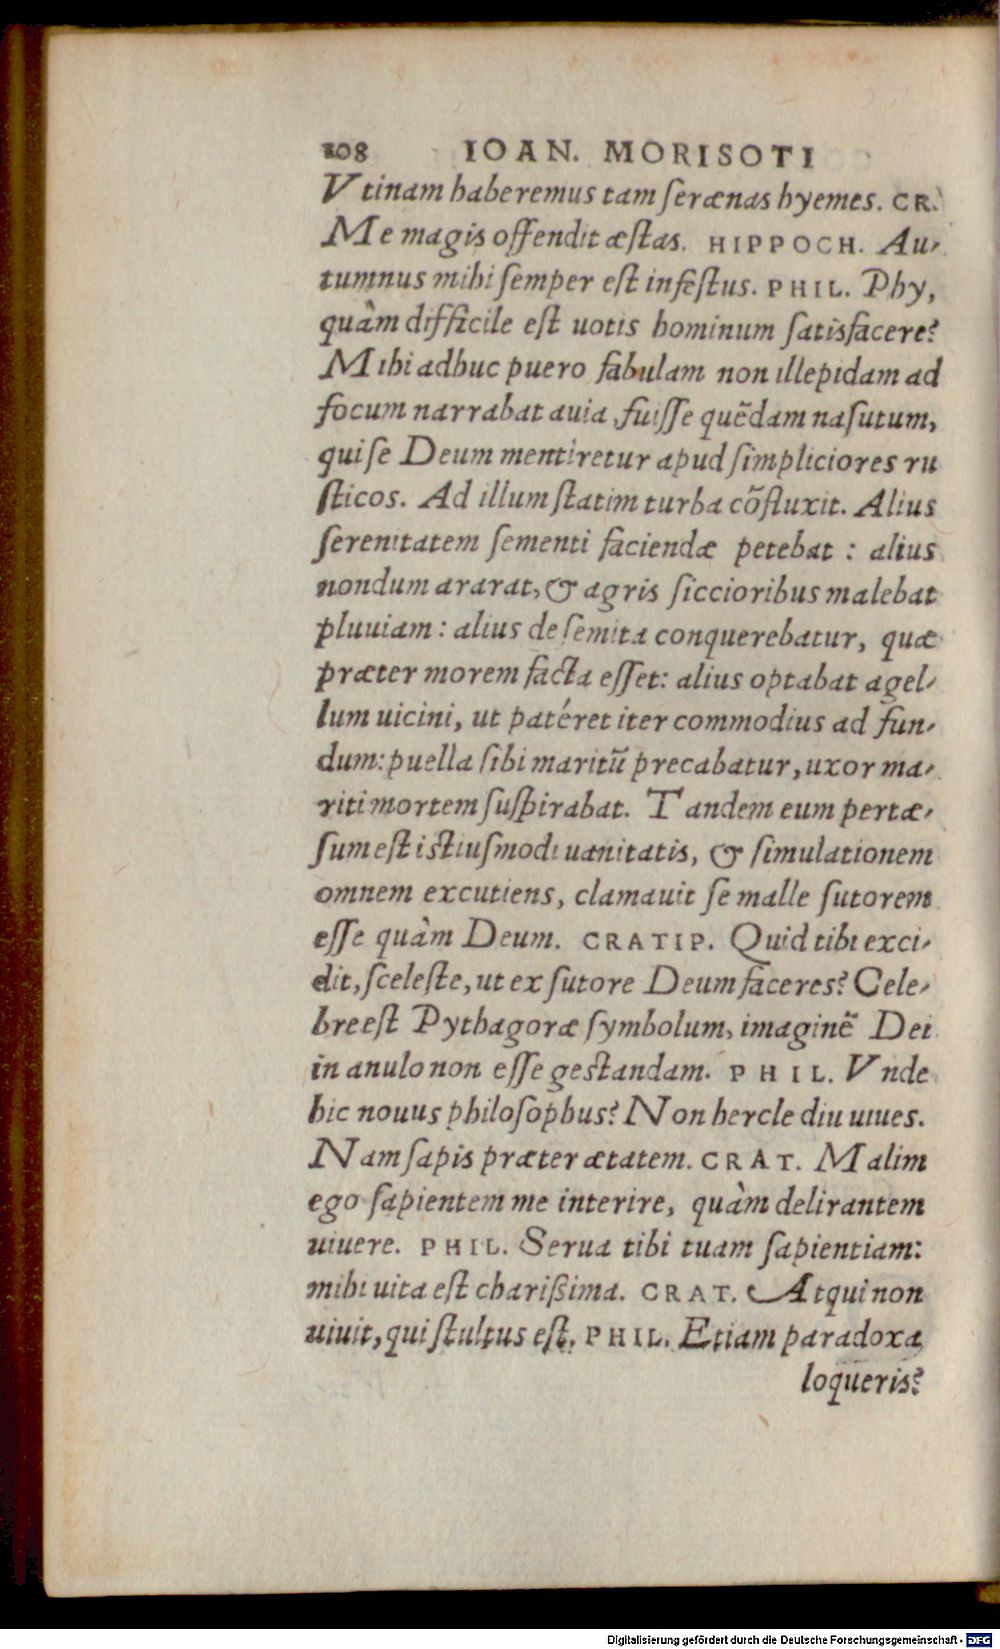 108 IOAN. MORISOTI
Vtinam haberemus tam serænas hyemes. CR.
Me magis offendit æstas. HIPPOCH. Au-
tumnus mihi semper est infestus. PHIL. Phy,
quàm difficile est uotis hominum satisfacere?
Mihi adhuc puero fabulam non illepidam ad
focum narrabat auia, fuisse quēdam nasutum,
qui se Deum mentiretur apud simpliciores ru
sticos. Ad illum statim turba cōfluxit. Alius
serenitatem sementi faciendæ petebat : alius
nondum ararat, & agris siccioribus malebat
pluuiam : alius de semita conquerebatur, quæ
præter morem facta esset: alius optabat agel-
lum uicini, ut patéret iter commodius ad fun-
dum: puella sibi maritū precabatur, uxor ma-
riti mortem suspirabat. Tandem eum pertæ-
sum est istiusmodi uanitatis, & simulationem
omnem excutiens, clamauit se malle sutorem
esse quàm Deum. CRATIP. Quid tibi exci-
dit, sceleste, ut ex sutore Deum faceres? Cele-
bre est Pythagoræ symbolum, imaginē Dei
in anulo non esse gestandam. PHIL. Vnde
hic nouus philosophus? Non hercle diu uiues.
Nam sapis præter ætatem. CRAT. Malim
ego sapientem me interire, quàm delirantem
uiuere. PHIL. Serua tibi tuam sapientiam:
mihi uita est charißima. CRAT. Atqui non
uiuit, qui stultus est. PHIL. Etiam paradoxa
loqueris?
Digitalisierung gefördert durch die Deutsche Forschungsgemeinschaft - DFG